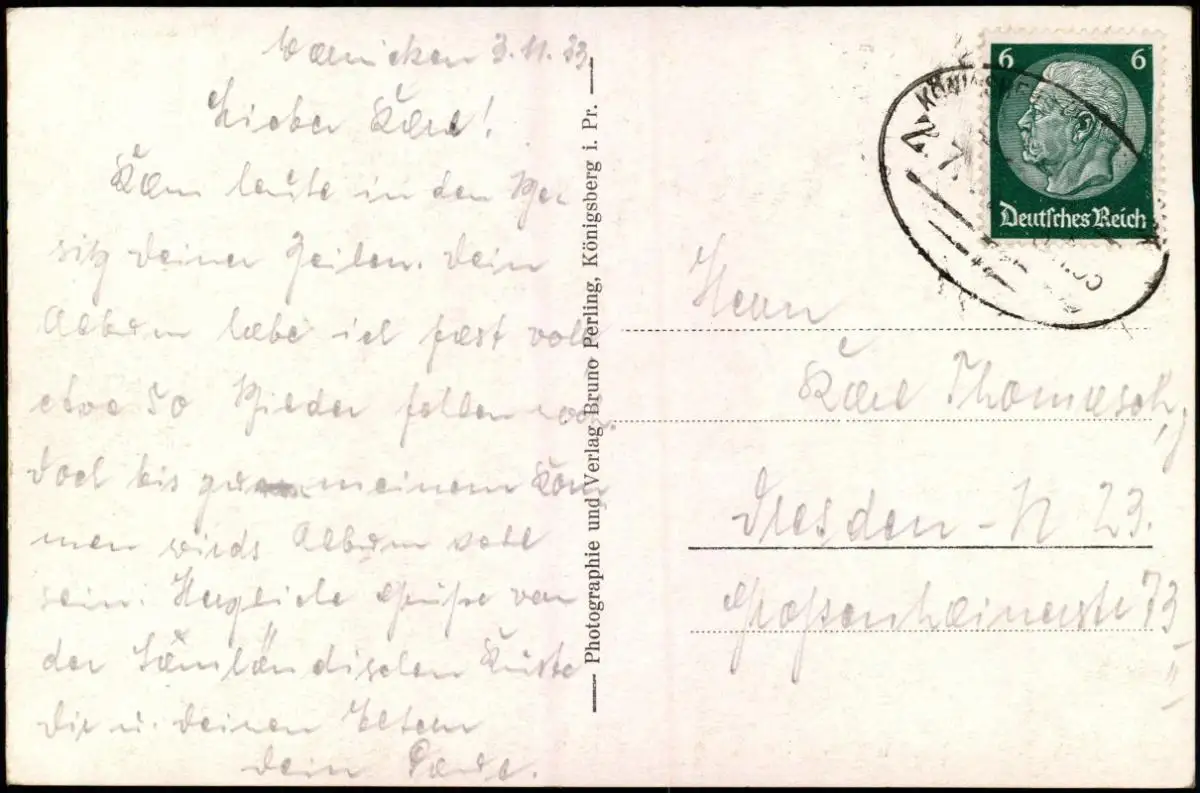 Warnicken 3.11.33.
Lieber Karl!
Kam heute in den Be
sitz deiner Zeilen. Dein
Album habe ich fast voll
etwa 50 Bilder fehlen noch.
Doch bis zu meinem Kom
men wirds Album voll
sein. Herzliche Grüße von
der Samländischen Küste
Dir u. deinen Eltern
Dein
Photographie und Verlag Bruno Perling, Königsberg i. Pr.
6 6
Deutsches Reich
Herrn
Karl Thomasch,
Dresden-N 23.
Großenhainerstr 73
II